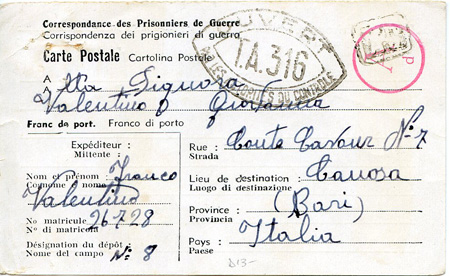 Correspondance des Prisonniers de Guerre
Corrispondenza dei prigionieri di guerra
Carte Postale Cartolina Postale
OUVERT
T.A.316
A Alla Signora
A Valentino Giovanna
Franc de port. Franco di porto
Expéditeur :
Mittente :
Nom et prénom Franco
Cognome e nome
Valentino
No matricule 26728
N° di matricola
Désignation du dépôt :
Nome del campo N° 8
Rue : Conte Cavour N° 7
Strada
Lieu de destination : Canosa
Luogo di destinazione
Province : (Bari)
Provincia
Pays : Italia
Paese